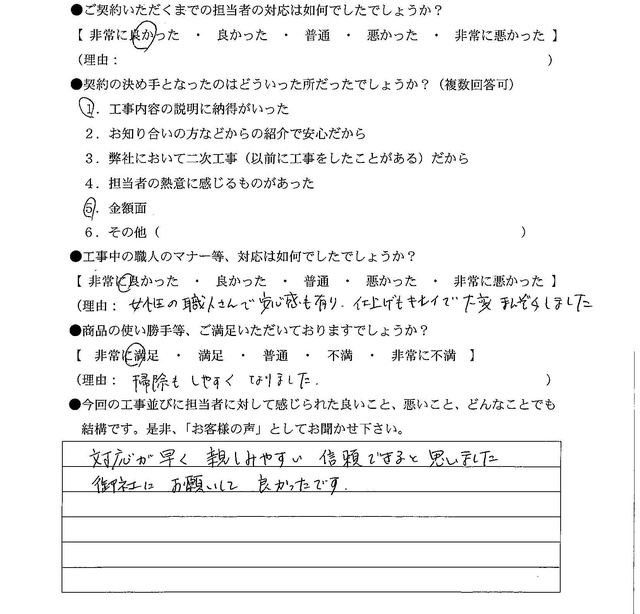 ●ご契約いただくまでの担当者の対応は如何でしたでしょうか？
【 非常に良かった ・ 良かった ・ 普通 ・ 悪かった ・ 非常に悪かった 】
（理由： ）
●契約の決め手となったのはどういった所だったでしょうか？（複数回答可）
１．工事内容の説明に納得がいった
２．お知り合いの方などからの紹介で安心だから
３．弊社において二次工事（以前に工事をしたことがある）だから
４．担当者の熱意に感じるものがあった
５．金額面
６．その他（ ）
●工事中の職人のマナー等、対応は如何でしたでしょうか？
【 非常に良かった ・ 良かった ・ 普通 ・ 悪かった ・ 非常に悪かった 】
（理由： 女性の職人さんで安心感も有り、仕上げもキレイで大変まんぞくしました
●商品の使い勝手等、ご満足いただいておりますでしょうか？
【 非常に満足 ・ 満足 ・ 普通 ・ 不満 ・ 非常に不満 】
（理由： 掃除もしやすくなりました. ）
●今回の工事並びに担当者に対して感じられた良いこと、悪いこと、どんなことでも
結構です。是非、「お客様の声」としてお聞かせ下さい。
対応が早く 親しみやすい 信頼できると思いました
御社に お願いして 良かったです.